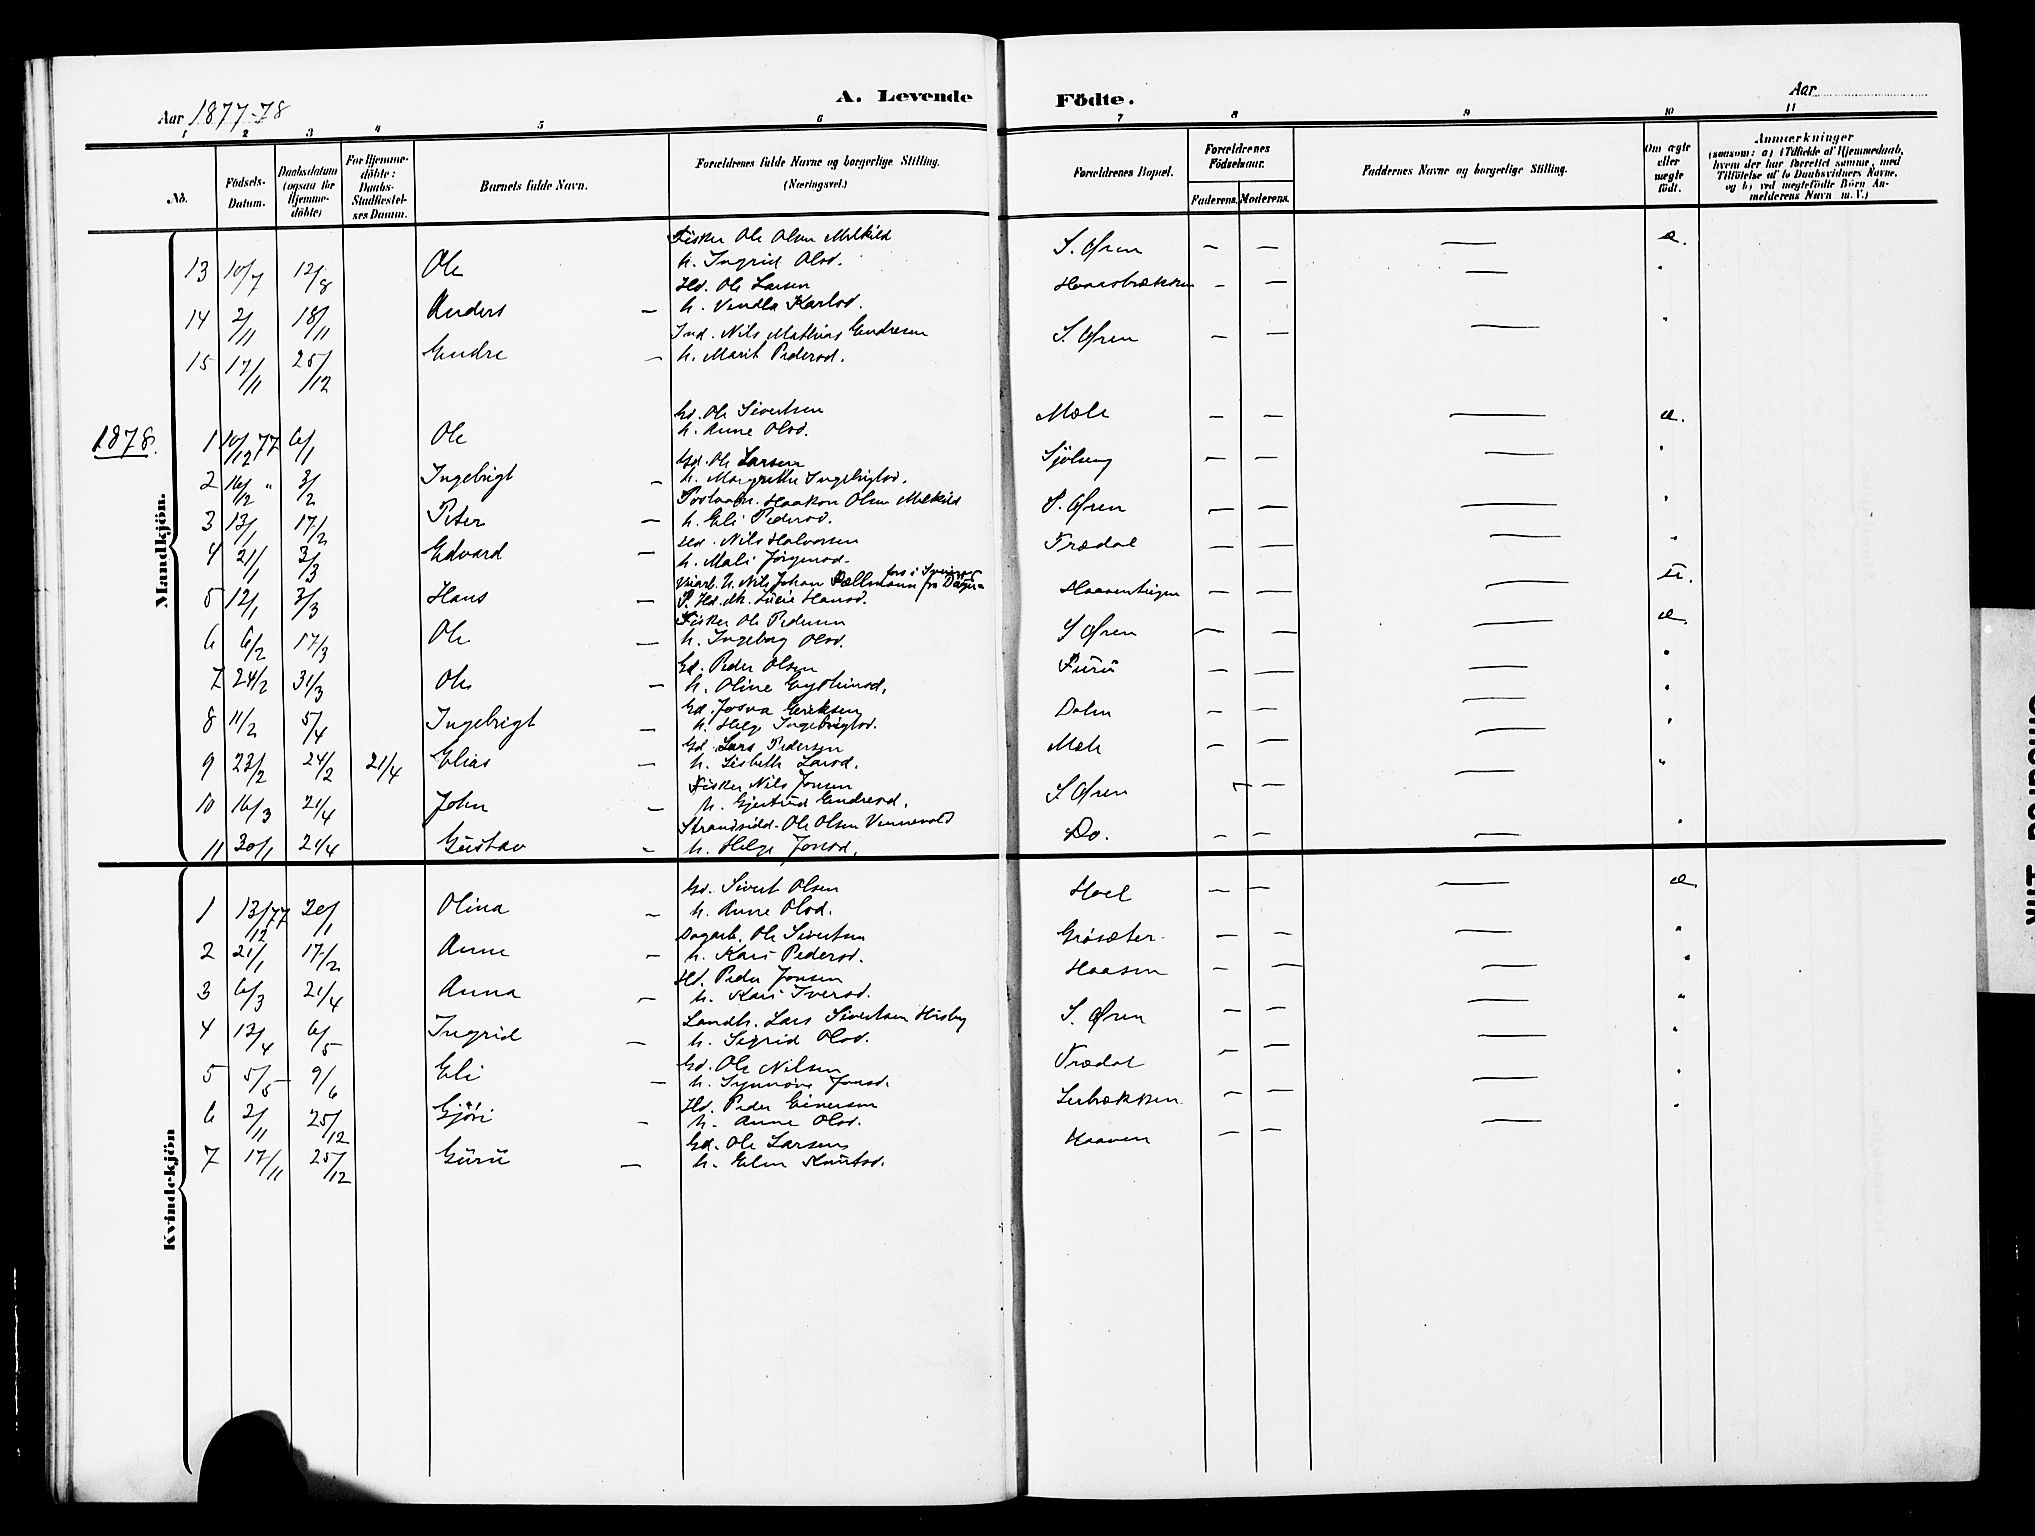 Aar 1877-78
A. Levende
Födte.
Aar
1 2 3 4 5 6 7 8 9 10 11
No.
Födsels-Datum.
Daabsdatum (ogsaa for Hjemmedöbte)
For Hjemmedöbte: Daabs-Stadfæstelses Datum.
Barnets fulde Navn.
Forældrenes fulde Navne og borgerlige Stilling. (Næringsvei.)
Forældrenes Bopæl.
Forældrenes Födselsaar.
Faderens. Moderens.
Faddernes Navne og borgerlige Stilling.
Om ægte eller uægte födt.
Anmærkninger
(saasom: a) i Tilfælde af Hjemmedaab, hvem der har forrettet samme, med Tilföielse af to Daabsvidners Navne, og b) ved uægtefödte Börn Anmelderens Navn m. V.)
Mandkjön.
Fisker Ole Olsen Melkild
13 10/7 12/8 Ole h. Ingrid Olsd. S. Øren — — — æ.
Hd. Ole Larsen
14 2/11 18/11 Anders — h. Vendla Karlsd. Haarstrækken — — — "
Ind. Nils Mathias Endresen
15 17/11 25/12 Endre — h. Marit Pedersd. S. Øren — — — "
1878.
Gd. Ole Sivertsen
1 10/12 77 6/1 Ole h. Anne Olsd. Mæle — — — æ.
Gd. Ole Larsen
2 16/12 " 3/2 Ingebrigt — h. Margrethe Ingebrigtsd. Sjölseng — — — "
Haakon Olsen Melkild
3 13/1 17/2 Peter — h. Eli Pedersd. S. Øren — — — "
Hd. Nils Halvorsen
4 21/1 3/3 Edvard — h. Mali Jörgensd. Trædal — — — "
Nils Johan
5 12/1 3/3 Hans — P. Hd. Lucie Hansd. — — — U.
Fisker Ole Pedersen
6 6/2 17/3 Ole — h. Ingeborg Olsd. S Øren — — — æ.
Gd. Peder Olsen
7 24/2 31/3 Ole — h. Oline Furu — — — "
Gd. Josva Eriksen
8 11/2 5/4 Ingebrigt — h. Helg Ingebrigtsd. Dalen — — — "
Gd. Lars Pedersen
9 23/2 24/2 21/4 Elias — h. Lisbeth Larsd. Mæle — — — "
Fisker Nils Jonsen
10 16/3 21/4 John — h. Gjertrud Endresd. S Øren — — — "
Strandsidd. Ole Olsen Vennevold
11 30/1 21/4 Gustav — h. Helge Jonsd. Do. — — — "
Kvindekjön
Gd. Sivert Olsen
1 13/12 77 20/1 Olina — h. Anne Olsd. Hoel — — — æ
Dagarb. Ole Sivertsen
2 21/1 17/2 Anne — h. Kari Pedersd. Gröseter — — — "
Hd. Peder Jonsen
3 6/3 21/4 Anna — h. Kari Iversd. Haasen — — — "
Landh. Lars Sivertsen Husby
4 13/4 6/5 Ingrid — h. Sigrid Olsd. S. Øren — — — "
Gd. Ole Nilsen
5 5/5 9/6 Eli — h. Synnöve Jonsd. Trædal — — — "
Hd. Peder Einersen
6 2/11 25/12 Gjöri — h. Anne Olsd. Lerbækken — — — "
Gd. Ole Larsen
7 17/11 25/12 Guru — h. Elen Knutsd. Haaven — — — "